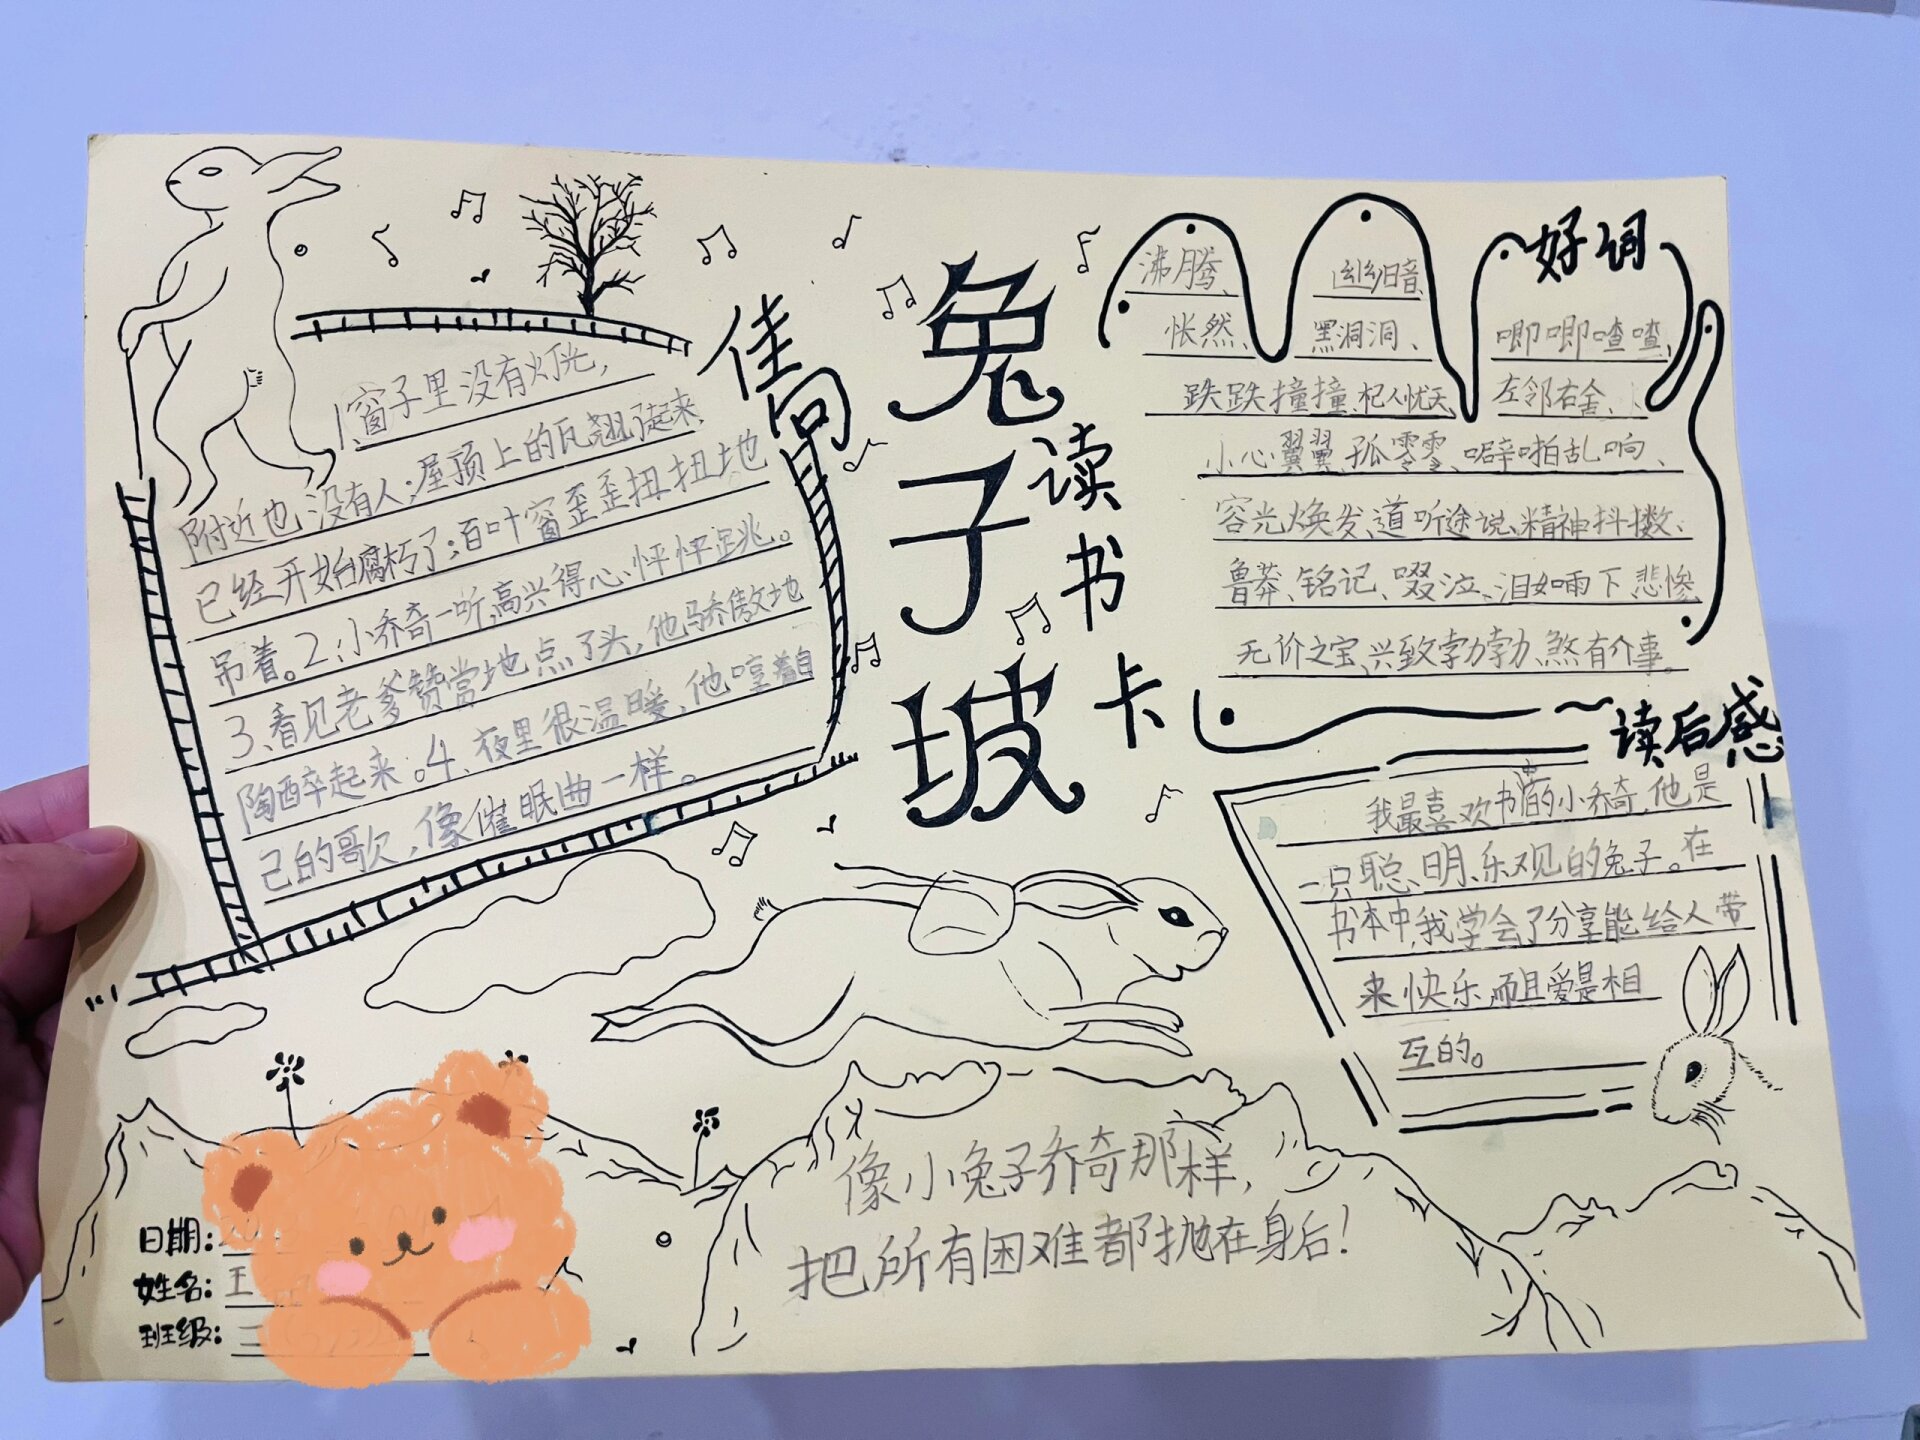 兔子坡
读书卡
佳句
1、窗子里没有灯光，
附近也没有人；屋顶上的瓦翘了起来，
已经开始腐朽了；百叶窗歪歪扭扭地
吊着。2、小乔奇一听，高兴得心怦怦跳。
3、看见老爹赞赏地点了头，他骄傲地
陶醉起来。4、夜里很温暖，他哼着自
己的歌，像催眠曲一样。
好词
沸腾、幽暗
怅然、黑洞洞、唧唧喳喳、
跌跌撞撞、杞人忧天、左邻右舍、
小心翼翼、孤零零、噼啪乱响、
容光焕发、道听途说、精神抖擞、
鲁莽、铭记、啜泣、泪如雨下、悲惨、
无价之宝、兴致勃勃、煞有介事。
读后感
我最喜欢书中的小乔奇，他是
一只聪明、乐观的兔子。在
书本中，我学会了分享能给人带
来快乐，而且爱是相
互的。
像小兔子乔奇那样，
把所有困难都抛在身后！
日期：
姓名：王
班级：三